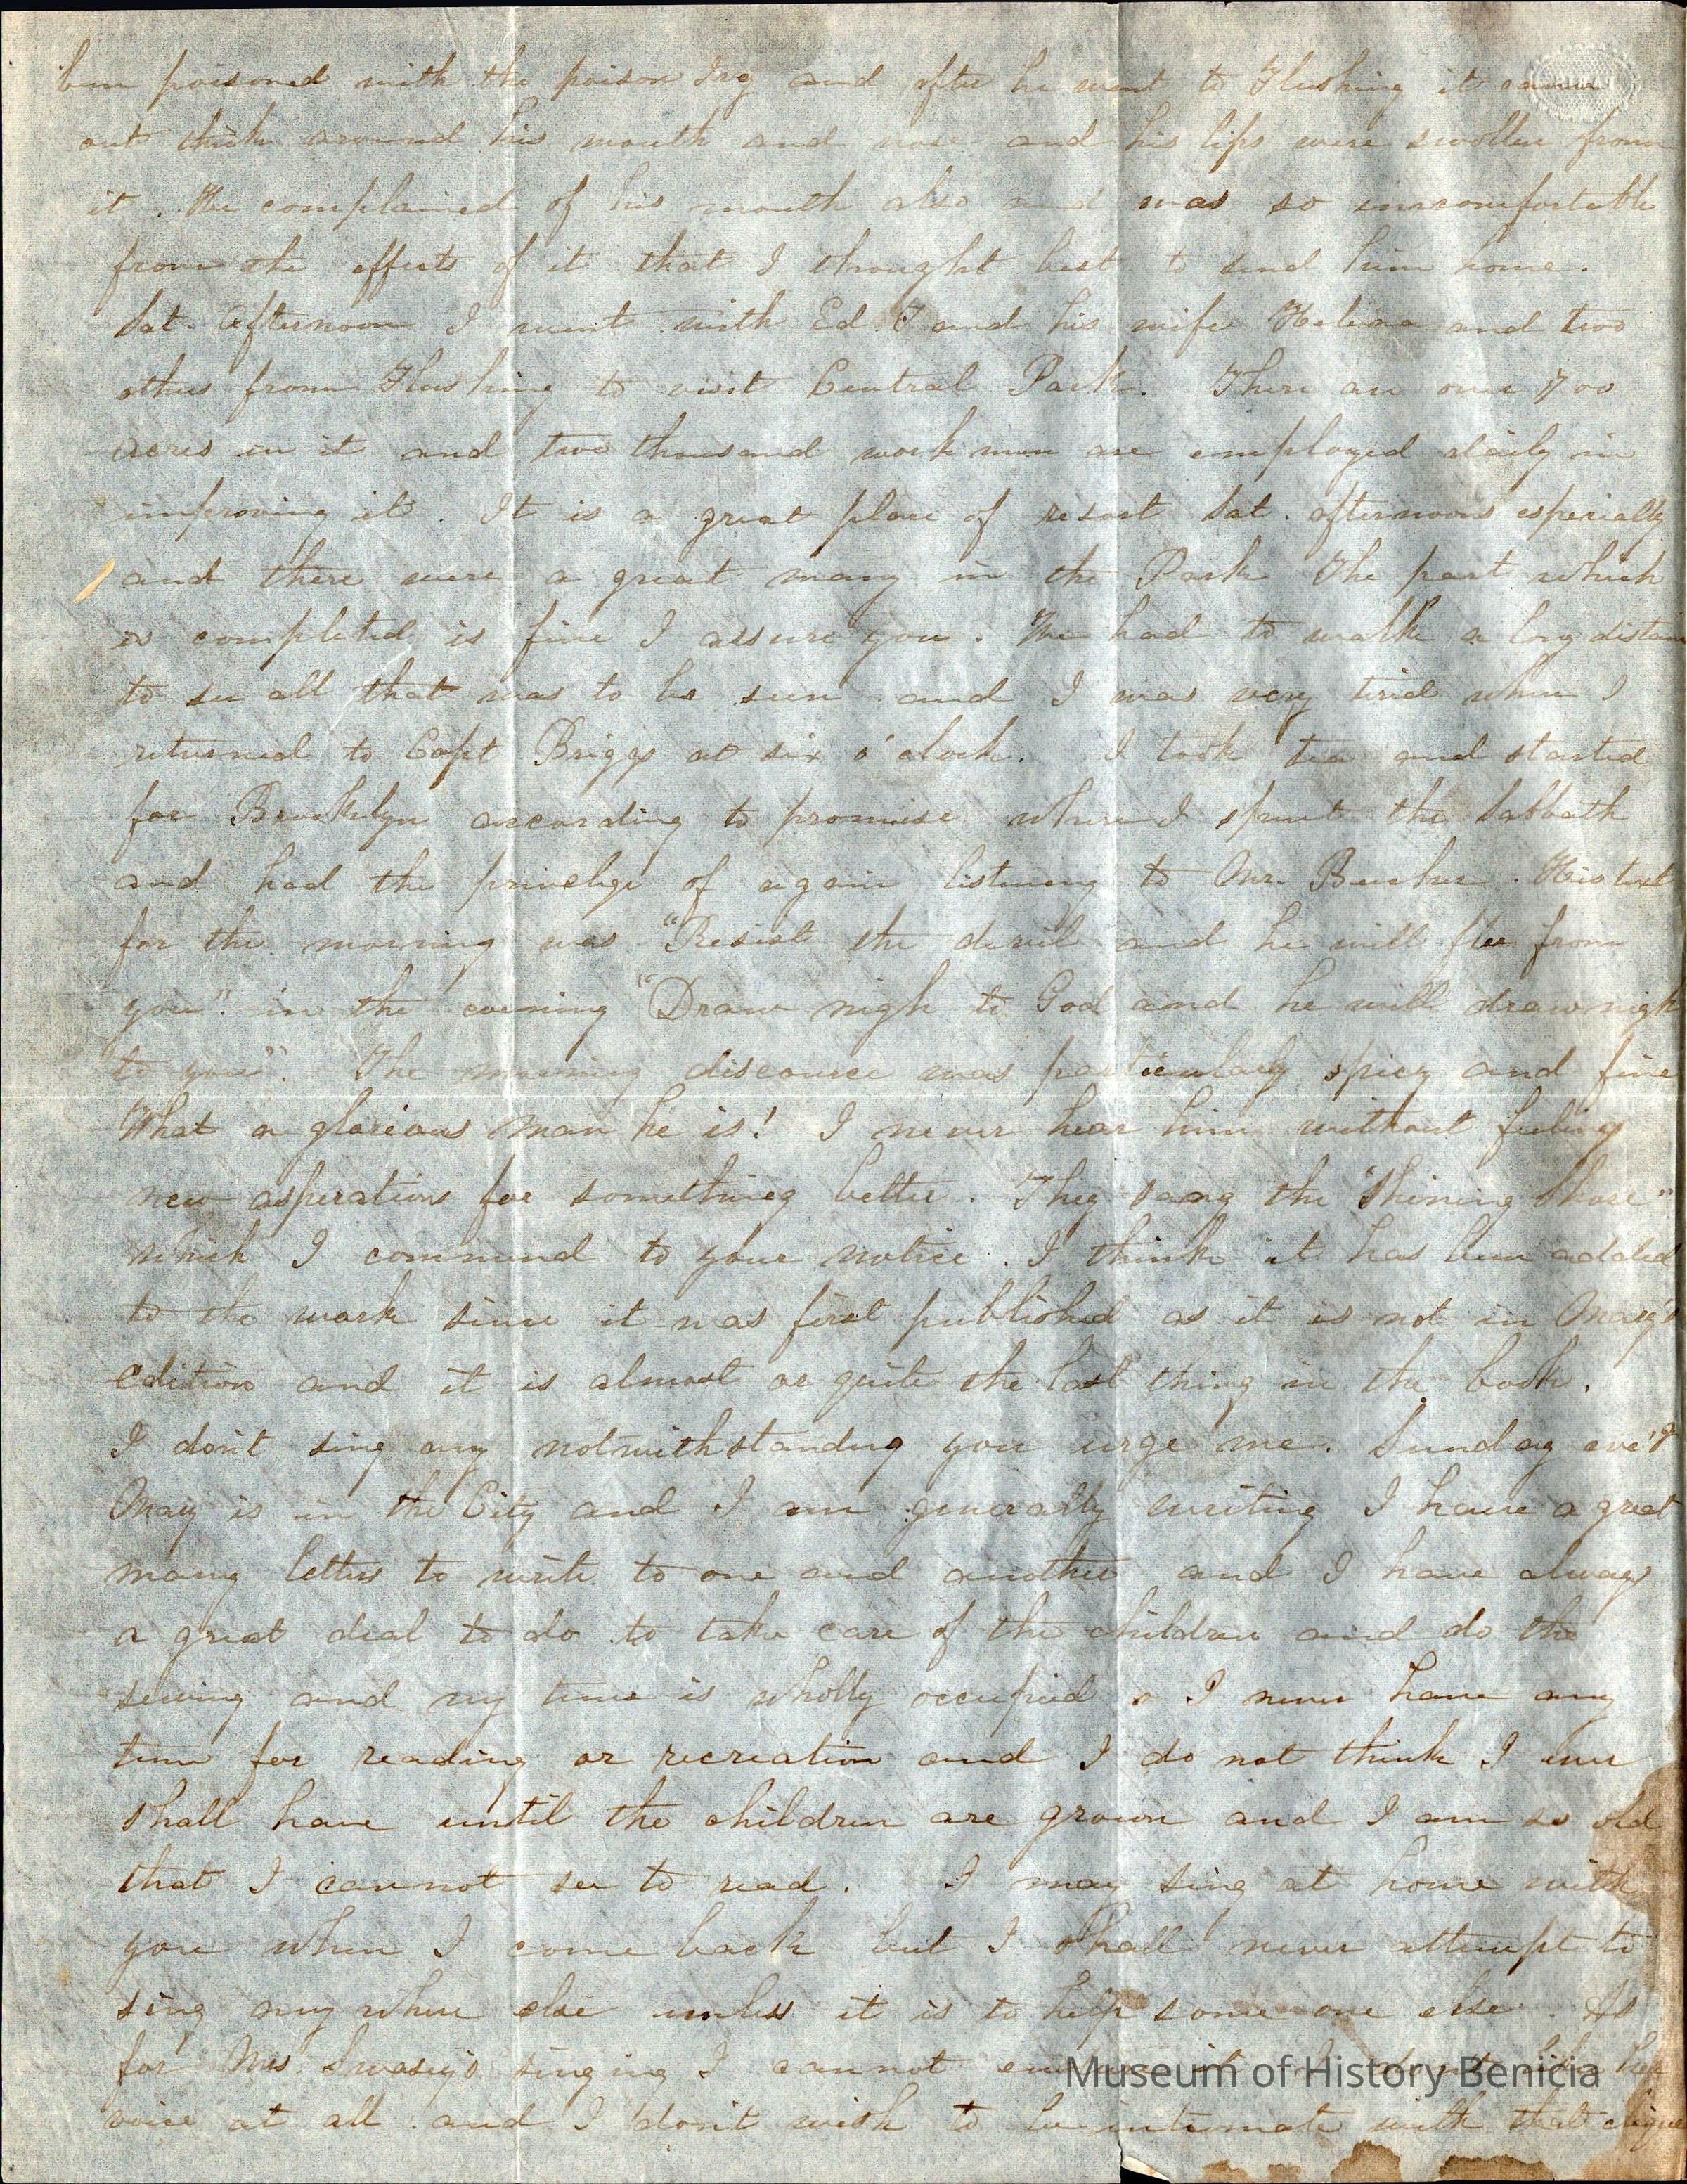 been poisoned with the poison Ivy and after he went to Flushing it came
out thick around his mouth and nose and his lips were swollen from
it. He complained of his mouth also and was so uncomfortable
from the effects of it that I thought best to send him home.
Sat. afternoon I went with Ed. and his wife Helena and two
others from Flushing to visit Central Park. There are over 700
acres in it and two thousand workmen are employed daily in
improving it. It is a great place of resort Sat. afternoons especially
and there were a great many in the Park The part which
is completed is fine I assure you. We had to walk a long distan
to see all that was to be seen and I was very tired when I
returned to Capt Briggs at six o'clock. I took tea and started
for Brooklyn according to promise where I spent the Sabbath
and had the privelige of again listening to Mr. Beecher. His text
for the morning was "Resist the devil and he will flee from
you". in the evening "Draw nigh to God and he will draw nigh
to you". The morning discource was particularly spicy and fine
What a glorious man he is! I never hear him without feeling
new asperations for something better. They sang the "Shining Shore"
which I commend to your notice. I think it has been added
to the work since it was first published as it is not in Mary's
edition and it is almost or quite the last thing in the book.
I don't sing any notwithstanding you urge me. Sunday eve'g
Mary is in the City and I am generally writing I have a great
many letters to write to one and another and I have always
a great deal to do to take care of the children and do the
sewing and my time is wholly occupied I never have any
time for reading or recreation and I do not think I ever
shall have until the children are grown and I am so old
that I cannot see to read. I may sing at home with
you when I come back but I shall never attempt to
sing any where else unless it is to help some one else. As
for Mrs. Swasey's singing I cannot her
voice at all and I don't wish to be intimate with that clique
Museum of History Benicia